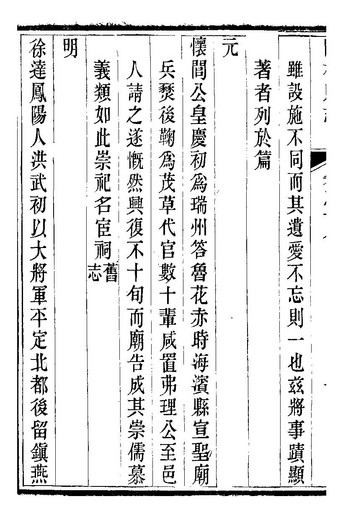 雖設施不同而其遺愛不忘則一也茲將事蹟顯
著者列於篇
元
懷閭公皇慶初為瑞州答魯花赤時海濱縣宣聖廟
兵燹後鞠為茂草代官數十輩咸置弗理公至邑
人請之遂慨然興復不十旬而廟告成其崇儒慕
義類如此崇祀名宦祠舊志
明
徐達鳳陽人洪武初以大將軍平定北都後留鎭燕